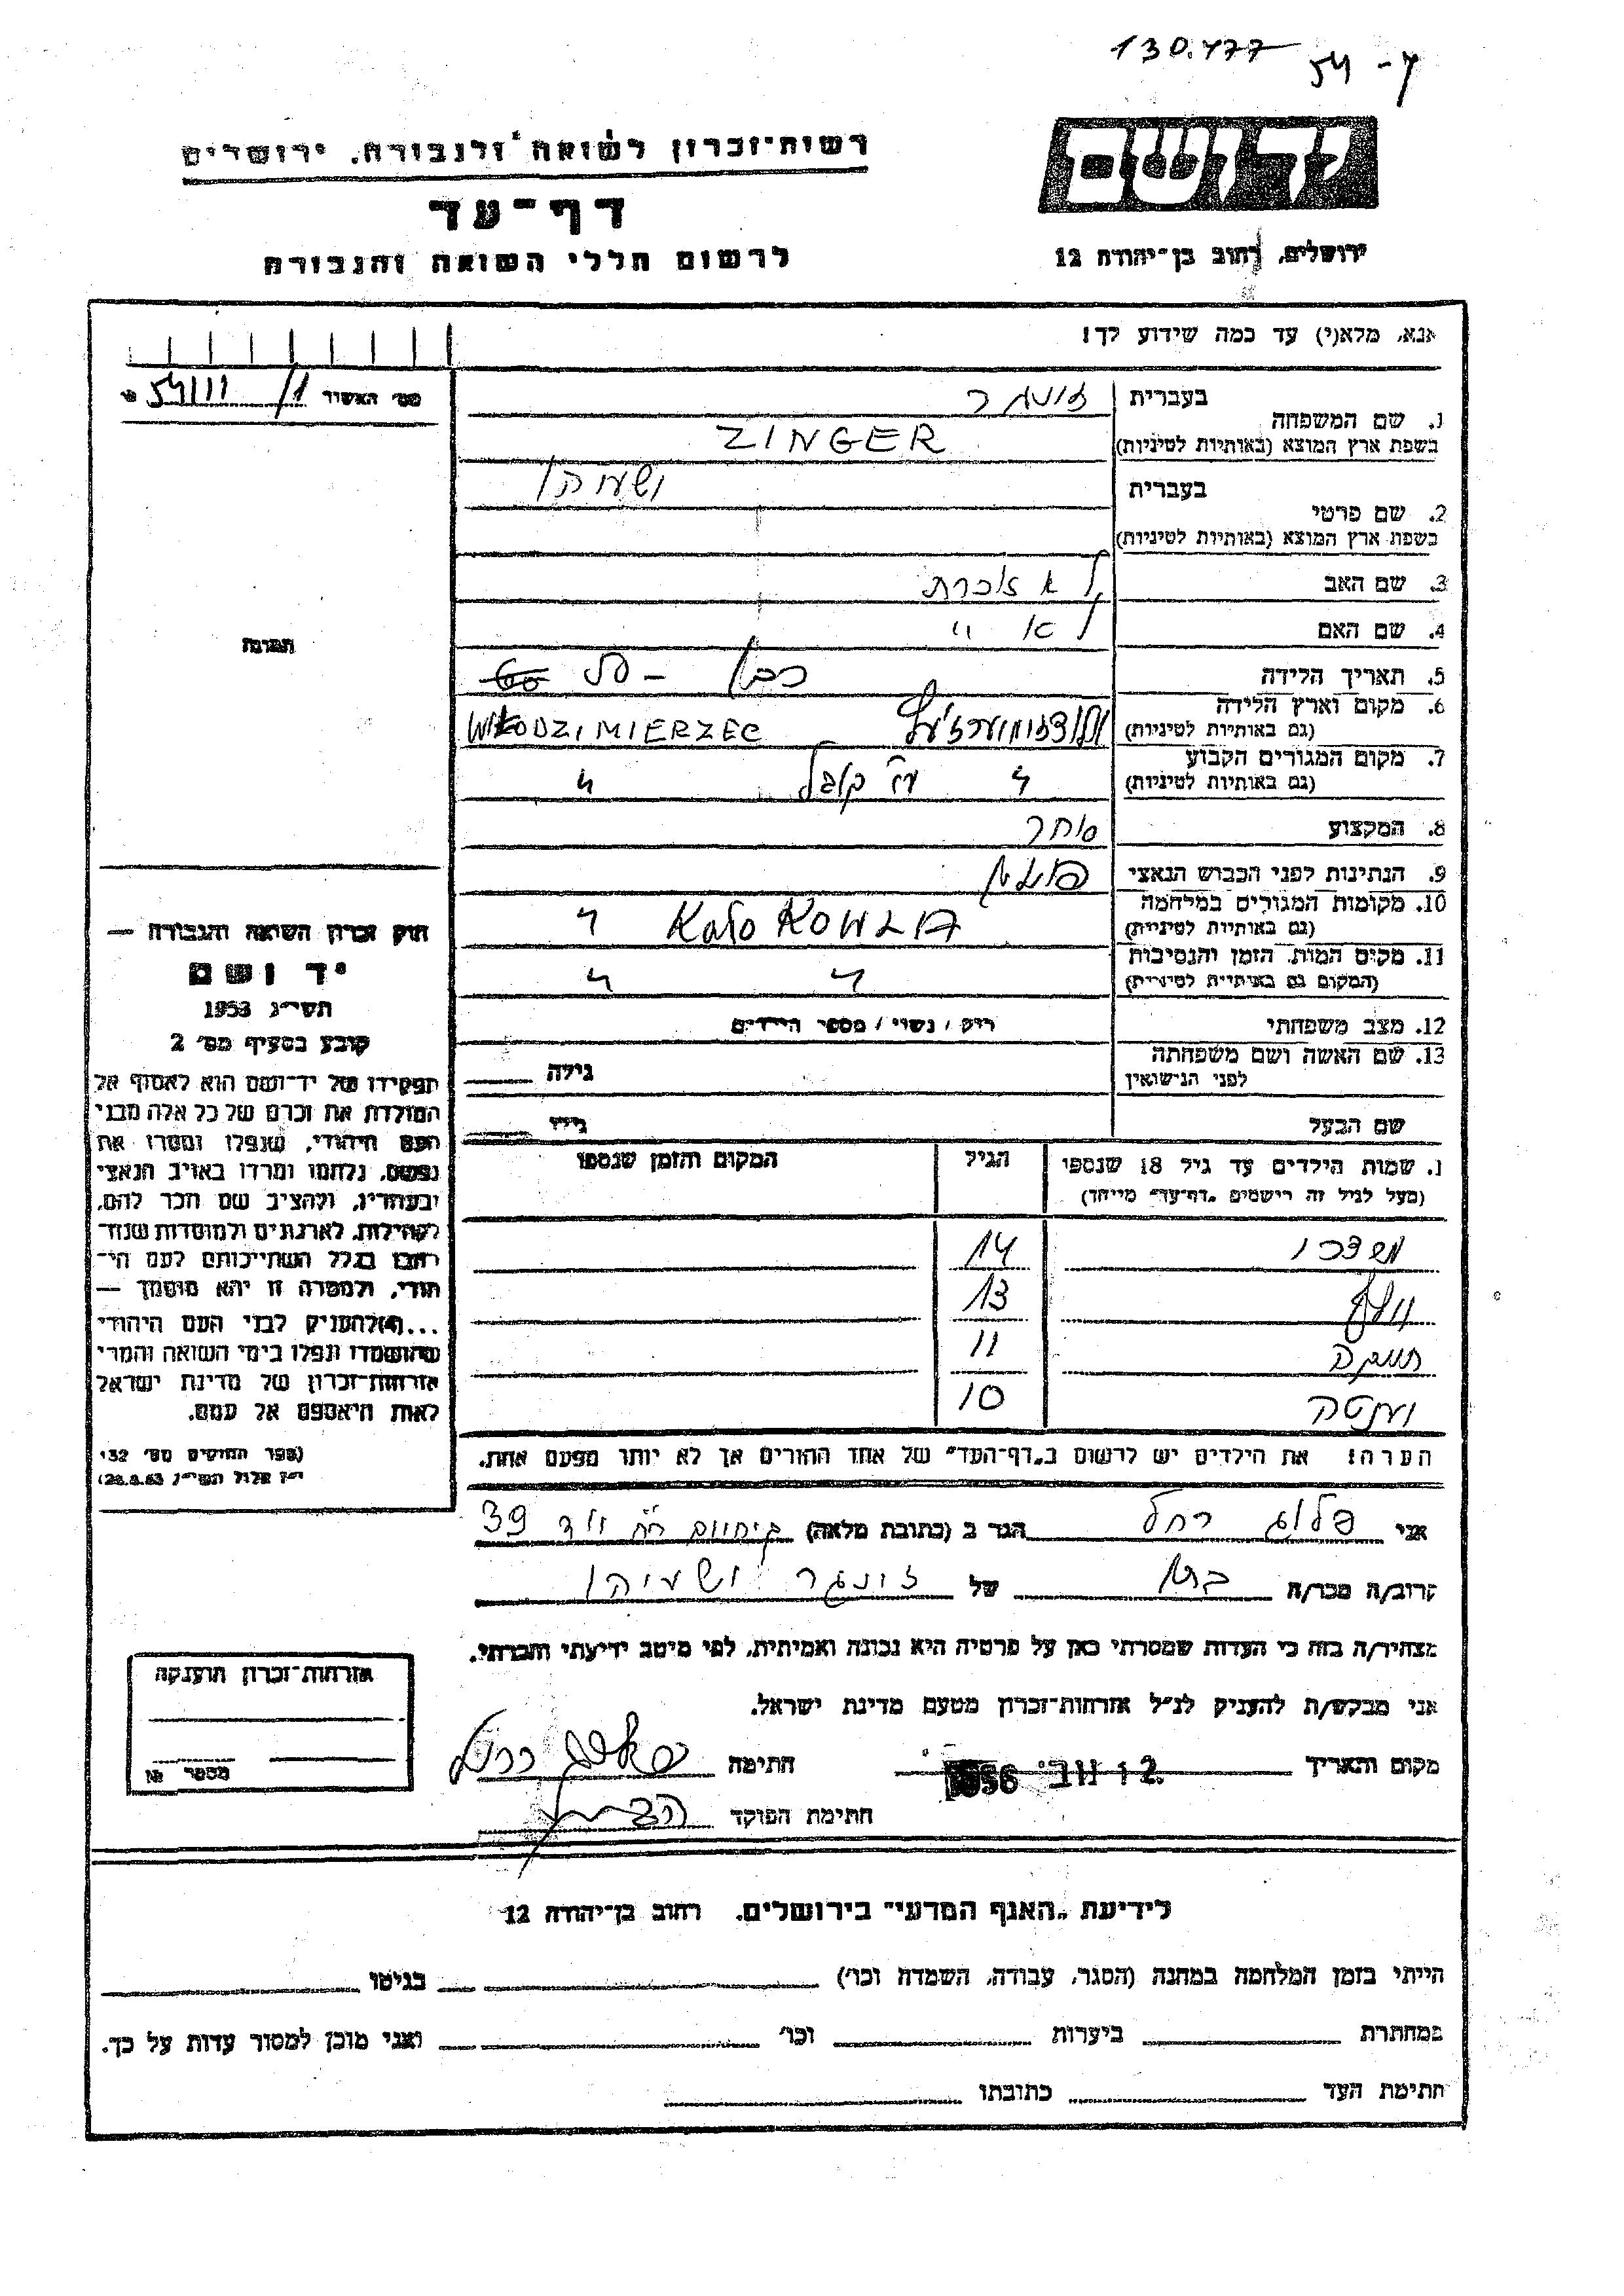 130.477 54-7
רשות־זכרון לשואה ולגבורה, ירושלים
יד ושם
דף־עד
לרשום חללי השואה והגבורה
ירושלים, רחוב בן־יהודה 12
אנא, מלא(י) עד כמה שידוע לך!
מס׳ האשיד
1. שם המשפחה
בעברית זינגר
בשפת ארץ המוצא (באותיות לטיניות) ZINGER
2. שם פרטי
בעברית ישעיהו
בשפת ארץ המוצא (באותיות לטיניות)
3. שם האב לא זוכרת
4. שם האם לא "
5. תאריך הלידה כבן – 50
6. מקום וארץ הלידה WŁODZIMIERZEC
(גם באותיות לטיניות)
7. מקום המגורים הקבוע " ע"י קובל "
(גם באותיות לטיניות)
8. המקצוע סוחר
9. הנתינות לפני הכבוש הנאצי פולנית
10. מקומות המגורים במלחמה Koło KOWLA "
(גם באותיות לטיניות)
11. מקום המות, הזמן והנסיבות " "
(המקום גם באותיות לטיניות)
12. מצב משפחתי רוק / נשוי / מספר הילדים
13. שם האשה ושם משפחתה גילה
לפני הנישואין
שם הבעל גילו
תמונה
1. שמות הילדים עד גיל 18 שנספו הגיל המקום והזמן שנספו
(מעל לגיל זה רישמים „דף־עד״ מיוחד)
מרדכי 14
וועלף 13
חייקה 11
יענטה 10
הערה! את הילדים יש לרשום ב„דף־העד״ של אחד ההורים אך לא יותר מפעם אחת.
חוק זכרון השואה והגבורה —
יד ושם
תשי״ג 1953
קובע בסעיף מס׳ 2
תפקידו של יד־ושם הוא לאסוף אל
המולדת את זכרם של כל אלה מבני
העם היהודי, שנפלו ומסרו את
נפשם, נלחמו ומרדו באויב הנאצי
ובעוזריו, ולהציב שם וזכר להם,
לקהילות, לארגונים ולמוסדות שנח־
רבו בגלל השתייכותם לעם הי־
הודי, ולמטרה זו יהא מוסמך —
...(4)להעניק לבני העם היהודי
שהושמדו ונפלו בימי השואה והמרי
אזרחות־זכרון של מדינת ישראל
לאות היאספם אל עמם.
(ספר החוקים מס׳ 132
י״ז אלול תשי״ג 28.8.53)
אני פלוג רחל הגר ב (כתובת מלאה) 39
קרוב/ה מכר/ה של זינגר ישעיהו
מצהיר/ה בזה כי העדות שמסרתי כאן על פרטיה היא נכונה ואמיתית, לפי מיטב ידיעתי והכרתי.
אני מבקש/ת להעניק לנ״ל אזרחות־זכרון מטעם מדינת ישראל.
מקום ותאריך 12 נוב׳ 1956 חתימה
חתימת הפוקד
אזרחות־זכרון הוענקה
מספר №
לידיעת „האגף המדעי״ בירושלים, רחוב בן־יהודה 12
הייתי בזמן המלחמה במחנה (הסגר, עבודה, השמדה וכו׳) בגיטו
במחתרת ביערות וכו׳ ואני מוכן למסור עדות על כך.
חתימת העד כתובתו